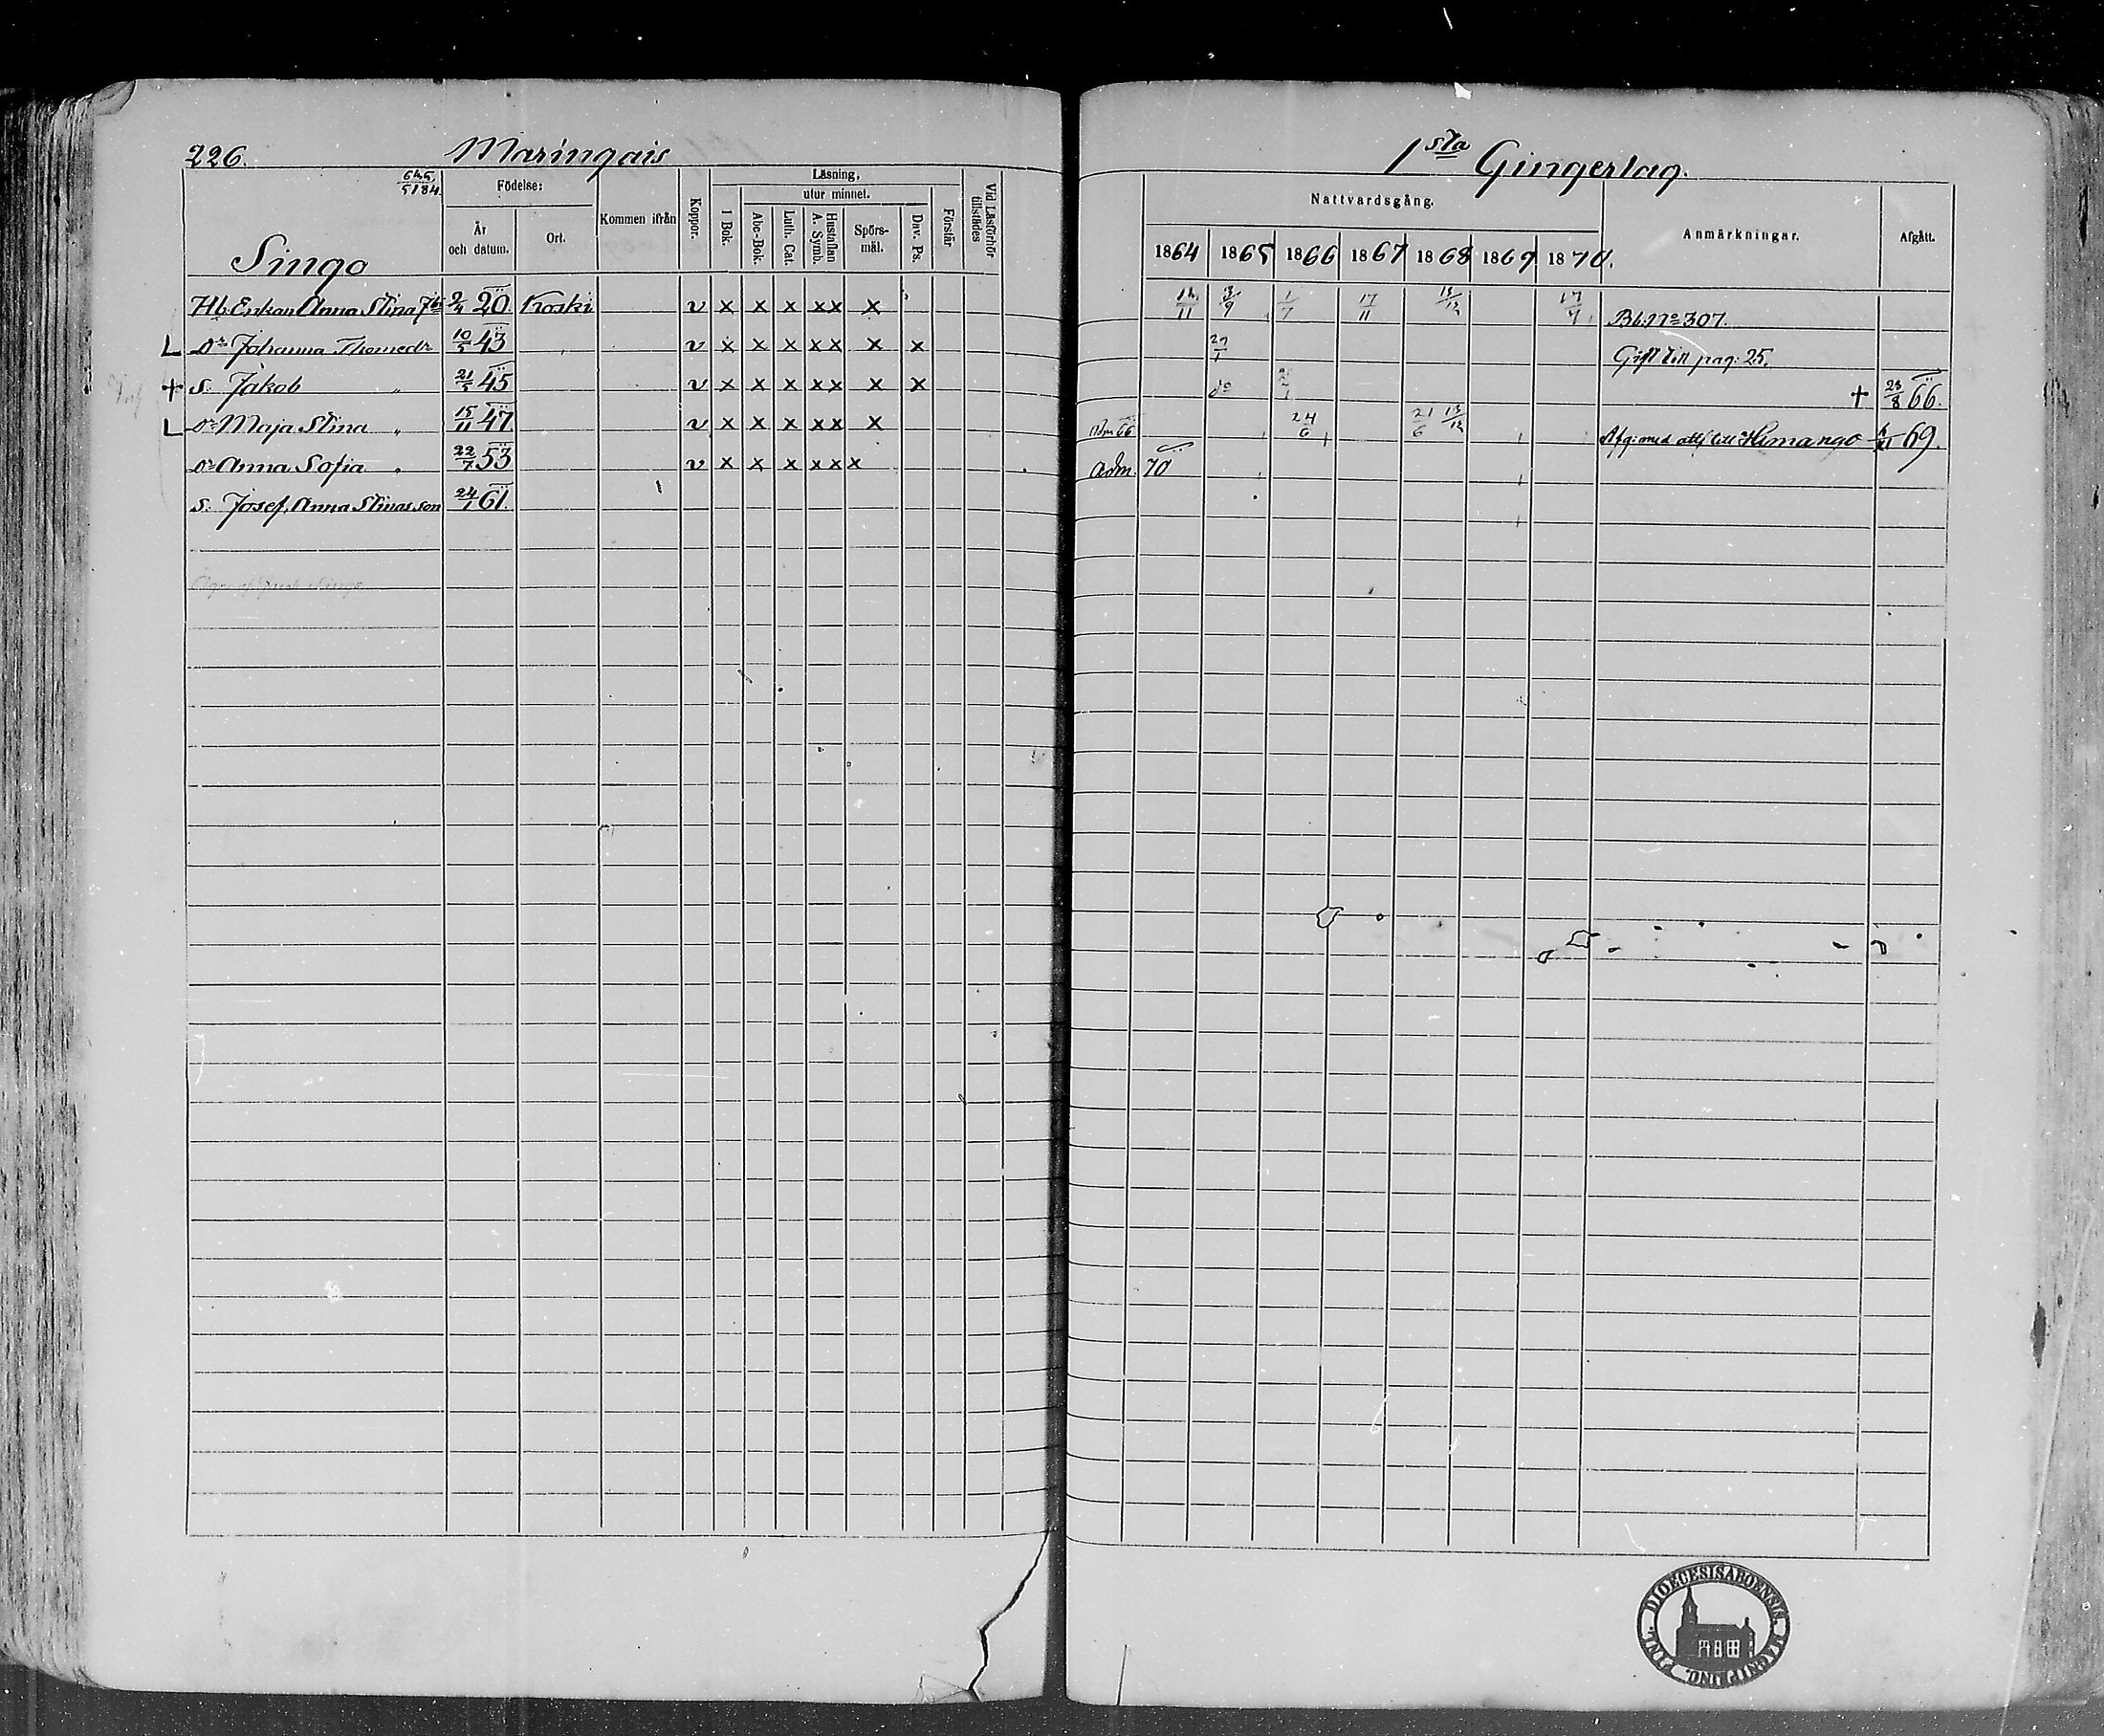 226. Maringais
1sta Gingerlag.
645
5184.
Födelse:
Kommen ifrån
Koppor.
Läsning,
utur minnet.
I Bok.
Abc-Bok.
Luth. Cat.
Hustaflan
A. Symb.
Spörs-
mål.
Dav. Ps.
Förstår
Vid Läsförhör
tillstädes
År
och datum.
Ort.
Nattvardsgång.
Anmärkningar.
Afgått.
1864 1865 1866 1867 1868 1869 1870.
Singo
Hb. Enkan Anna Stina 9/4 20. Koski v x x x xx x 3/9 1/7 17/11 17/7 Bb. No 307.
L Dr Johanna Thomedr 10/5 43 v x x x xx x x 27/1 Gift till pag: 25.
+ S. Jakob " 21/5 45 v x x x xx x x do + 23/8 66.
L Dr Maja Stina " 15/11 47 v x x x xx x Adm 66 24/6 21/6 13/12 Afg: med att till Himango 69.
Dr Anna Sofia " 22/7 53 v x x x xx x Adm. 70
S. Josef, Anna Stinas son 24/1 61.
DIOECESIS ABOENSIS